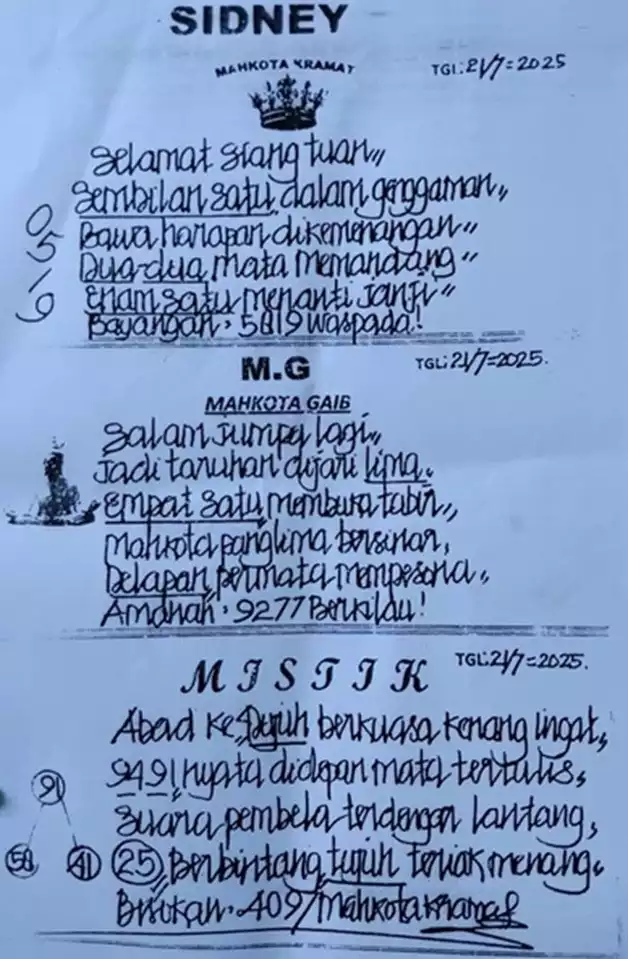 SIDNEY
MAHKOTA KRAMAT
TGL: 21/7=2025
Selamat siang tuan,,
Sembilan satu dalam genggaman,,
Bawa harapan dikemenangan,,
Dua-dua mata memandang,,
Enam satu menanti janji,,
Bayangan, 5819 waspada!
M.G
TGL: 21/7=2025.
MAHKOTA GAIB
Salam jumpa lagi,,
Jadi taruhan dijari lima.
Empat satu membuka tabir,,
Mahkota panglima bersinar,
Delapan permata mempesona,,
Amanah, 9277 Berkilau!
MISTIK
TGL: 21/7=2025.
Abad ke, Tujuh berkuasa kenang ingat,
9491, nyata didepan mata tertulis,
Suara pembela terdengar lantang,
25 Berbintang tujuh teriak menang.
Bisikan. 409/Mahkota kramat
0
5
6
91
50
41